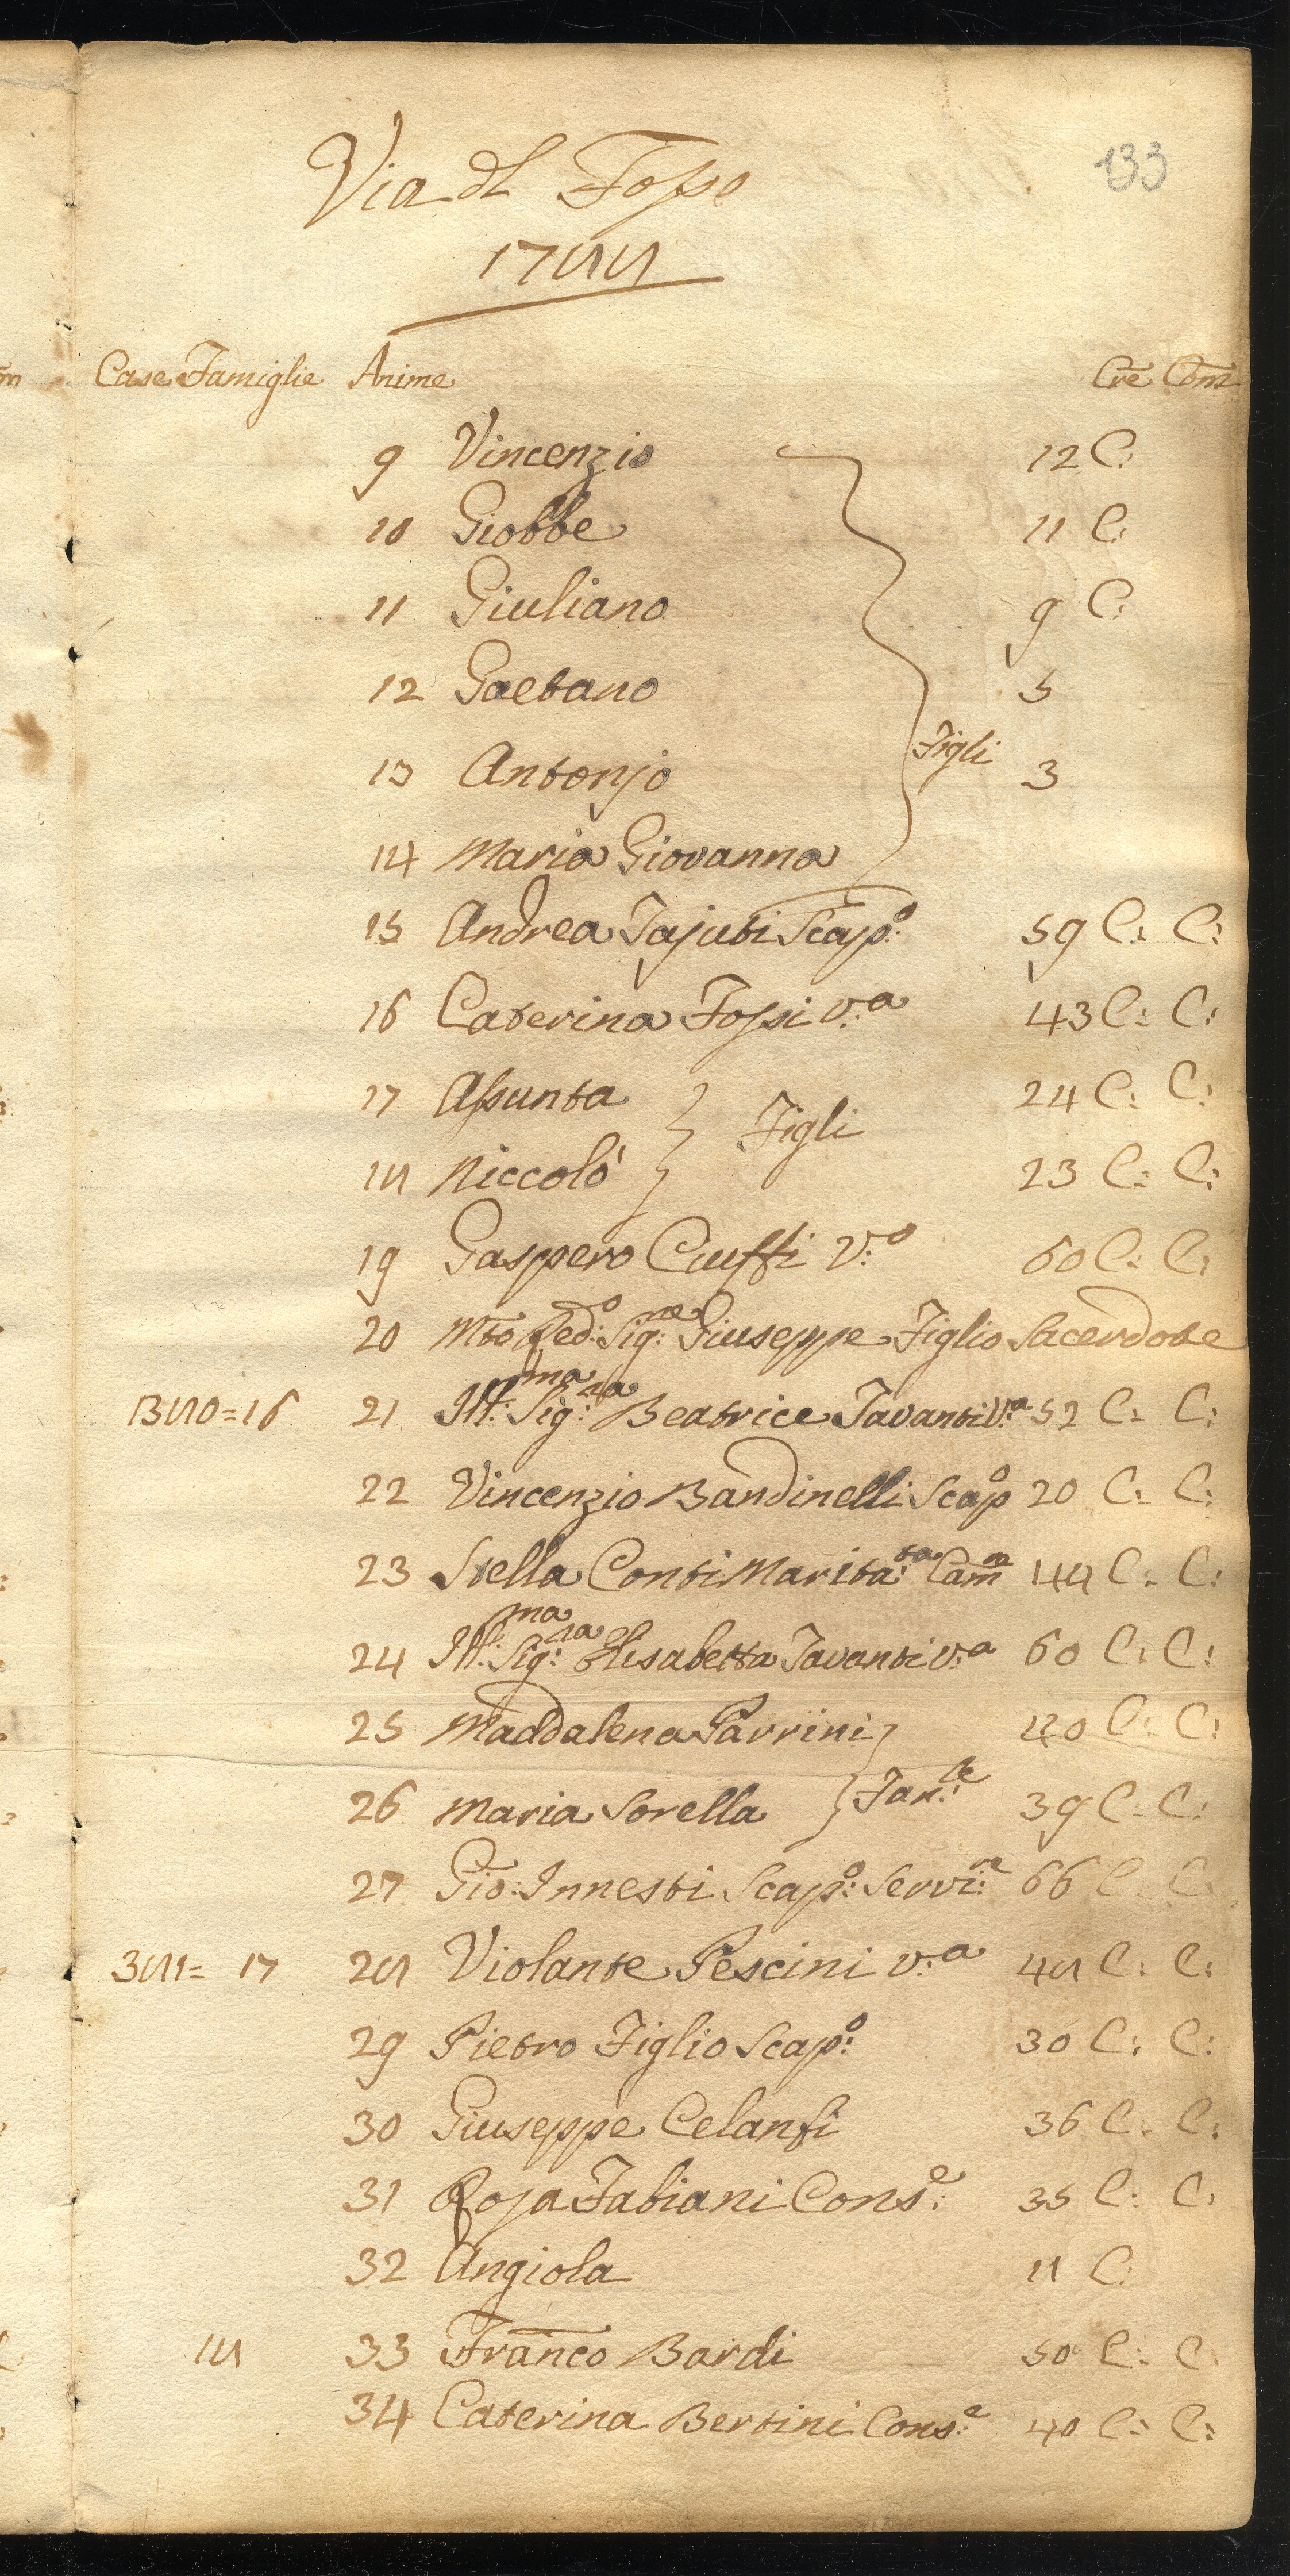 133
Via dl Fosso
1788
Case Famiglie Anime Cre Com
9 Vincenzio 12 C:
10 Giobbe 11 C:
11 Giuliano 9 C:
12 Gaetano 5
13 Antonjo Figli 3
14 Maria Giovanna
15 Andrea Fajuti Scap:o 59 C: C:
16 Caterina Fossi v:a 43 C: C:
17 Assunta 24 C: C:
Figli
18 Niccolò 23 C: C:
19 Gaspero Ciuffi V:o 60 C: C:
20 Mto Red:o Sig:re Giuseppe Figlio Sacerdote
380=16 21 Ill:ma Sig:ra Beatrice Tavanti V:a 52 C: C:
22 Vincenzio Bandinelli Scapo 20 C: C:
23 Stella Conti Marita:ta Camra 48 C: C:
24 Ill:ma Sig:ra Elisabetta Tavanti v:a 60 C: C:
25 Maddalena Parrini 40 C: C:
26 Maria Sorella Fan:te 39 C: C:
27 Gio: Innesti Scap:o Servi:re 66 C: C:
381= 17 28 Violante Pescini v:a 48 C: C:
29 Pietro Figlio Scap:o 30 C: C:
30 Giuseppe Celanfi 36 C: C:
31 Rosa Fabiani Cons:e 35 C: C:
32 Angiola 8 C:
18 33 Franco Bardi 50 C: C:
34 Caterina Bertini Cons:e 40 C: C: